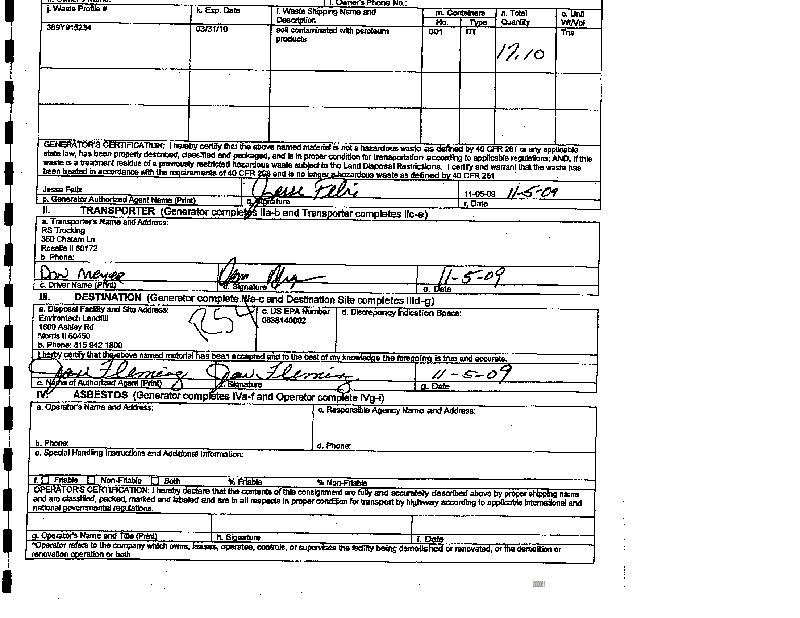 i. Owner's Phone No.:
j. Waste Profile #
k. Exp. Date
l. Waste Shipping Name and Description
m. Containers
No.
Type
n. Total Quantity
o. Unit Wt/Vol
03/31/10
soil contaminated with petroleum products
001
DT
17.10
Tns
GENERATOR'S CERTIFICATION: I hereby certify that the above named material is not a hazardous waste as defined by 40 CFR 261 or any applicable
state law, has been properly described, classified and packaged, and is in proper condition for transportation according to applicable regulations; AND, if this
waste is a treatment residue of a previously restricted hazardous waste subject to the Land Disposal Restrictions. I certify and warrant that the waste has
been treated in accordance with the requirements of 40 CFR 268 and is no longer a hazardous waste as defined by 40 CFR 261
Jesse Felix
Jesse Felix
11-05-09 11-5-09
p. Generator Authorized Agent Name (Print)
q. Signature
r. Date
II. TRANSPORTER (Generator completes IIa-b and Transporter completes IIc-e)
a. Transporter's Name and Address:
RS Trucking
360 Chatam Ln
Roselle Il 60172
b. Phone:
Don Meyer
11-5-09
c. Driver Name (Print)
d. Signature
e. Date
III. DESTINATION (Generator complete IIIa-c and Destination Site completes IIId-g)
a. Disposal Facility and Site Address:
c. US EPA Number
d. Discrepancy Indication Space:
Environtech Landfill
0638140002
1600 Ashley Rd
Morris Il 60450
b. Phone: 815 942 1800
I hereby certify that the above named material has been accepted and to the best of my knowledge the foregoing is true and accurate.
Jane Fleming
Jane Fleming
11-5-09
e. Name of Authorized Agent (Print)
f. Signature
g. Date
IV. ASBESTOS (Generator completes IVa-f and Operator complete IVg-i)
a. Operator's Name and Address:
c. Responsible Agency Name and Address:
b. Phone:
d. Phone:
e. Special Handling Instructions and Additional Information:
f. Friable Non-Friable Both % Friable % Non-Friable
OPERATOR'S CERTIFICATION: I hereby declare that the contents of this consignment are fully and accurately described above by proper shipping name
and are classified, packed, marked and labeled and are in all respects in proper condition for transport by highway according to applicable international and
national governmental regulations.
g. Operator's Name and Title (Print)
h. Signature
i. Date
*Operator refers to the company which owns, leases, operates, controls, or supervises the facility being demolished or renovated, or the demolition or
renovation operation or both